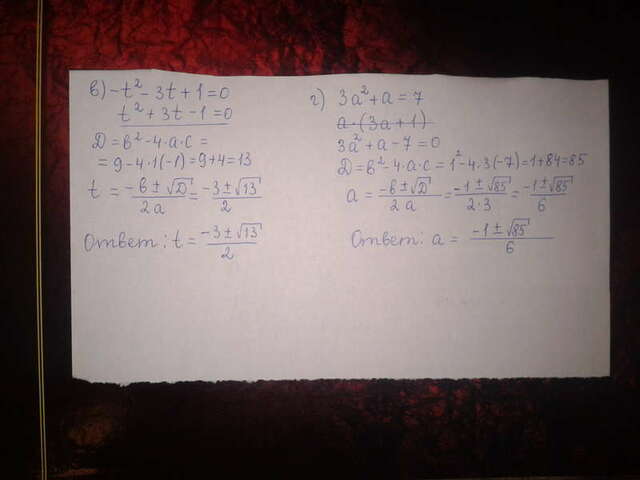 в) -t² - 3t + 1 = 0
t² + 3t - 1 = 0
D = b² - 4·a·c =
= 9 - 4·1(-1) = 9 + 4 = 13
t = (-b ± √D)/2a = (-3 ± √13)/2
Ответ: t = (-3 ± √13)/2
г) 3a² + a = 7
a·(3a + 1)
3a² + a - 7 = 0
D = b² - 4·a·c = 1² - 4·3(-7) = 1 + 84 = 85
a = (-b ± √D)/2a = (-1 ± √85)/2·3 = (-1 ± √85)/6
Ответ: a = (-1 ± √85)/6